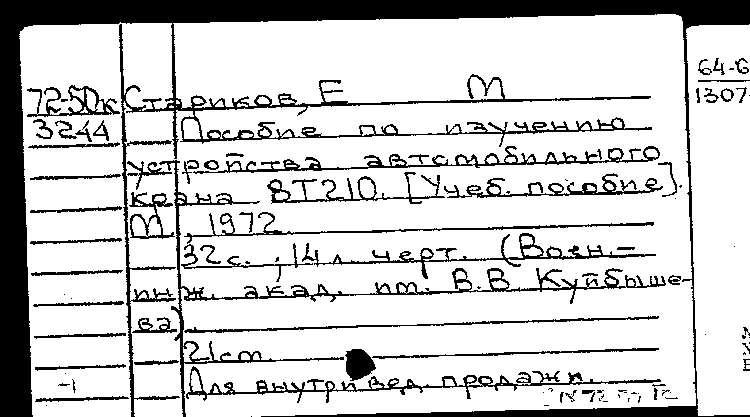 72-50к Стариков, Е М
3244 Пособие по изучению
устройства автомобильного
крана 8Т210. [Учеб. пособие].
М, 1972.
32 с. ; 14 л. черт. (Воен.-
инж. акад. им. В.В. Куйбыше-
ва).
21 cm.
-1 Для внутривед. продажи.
64-6
1307